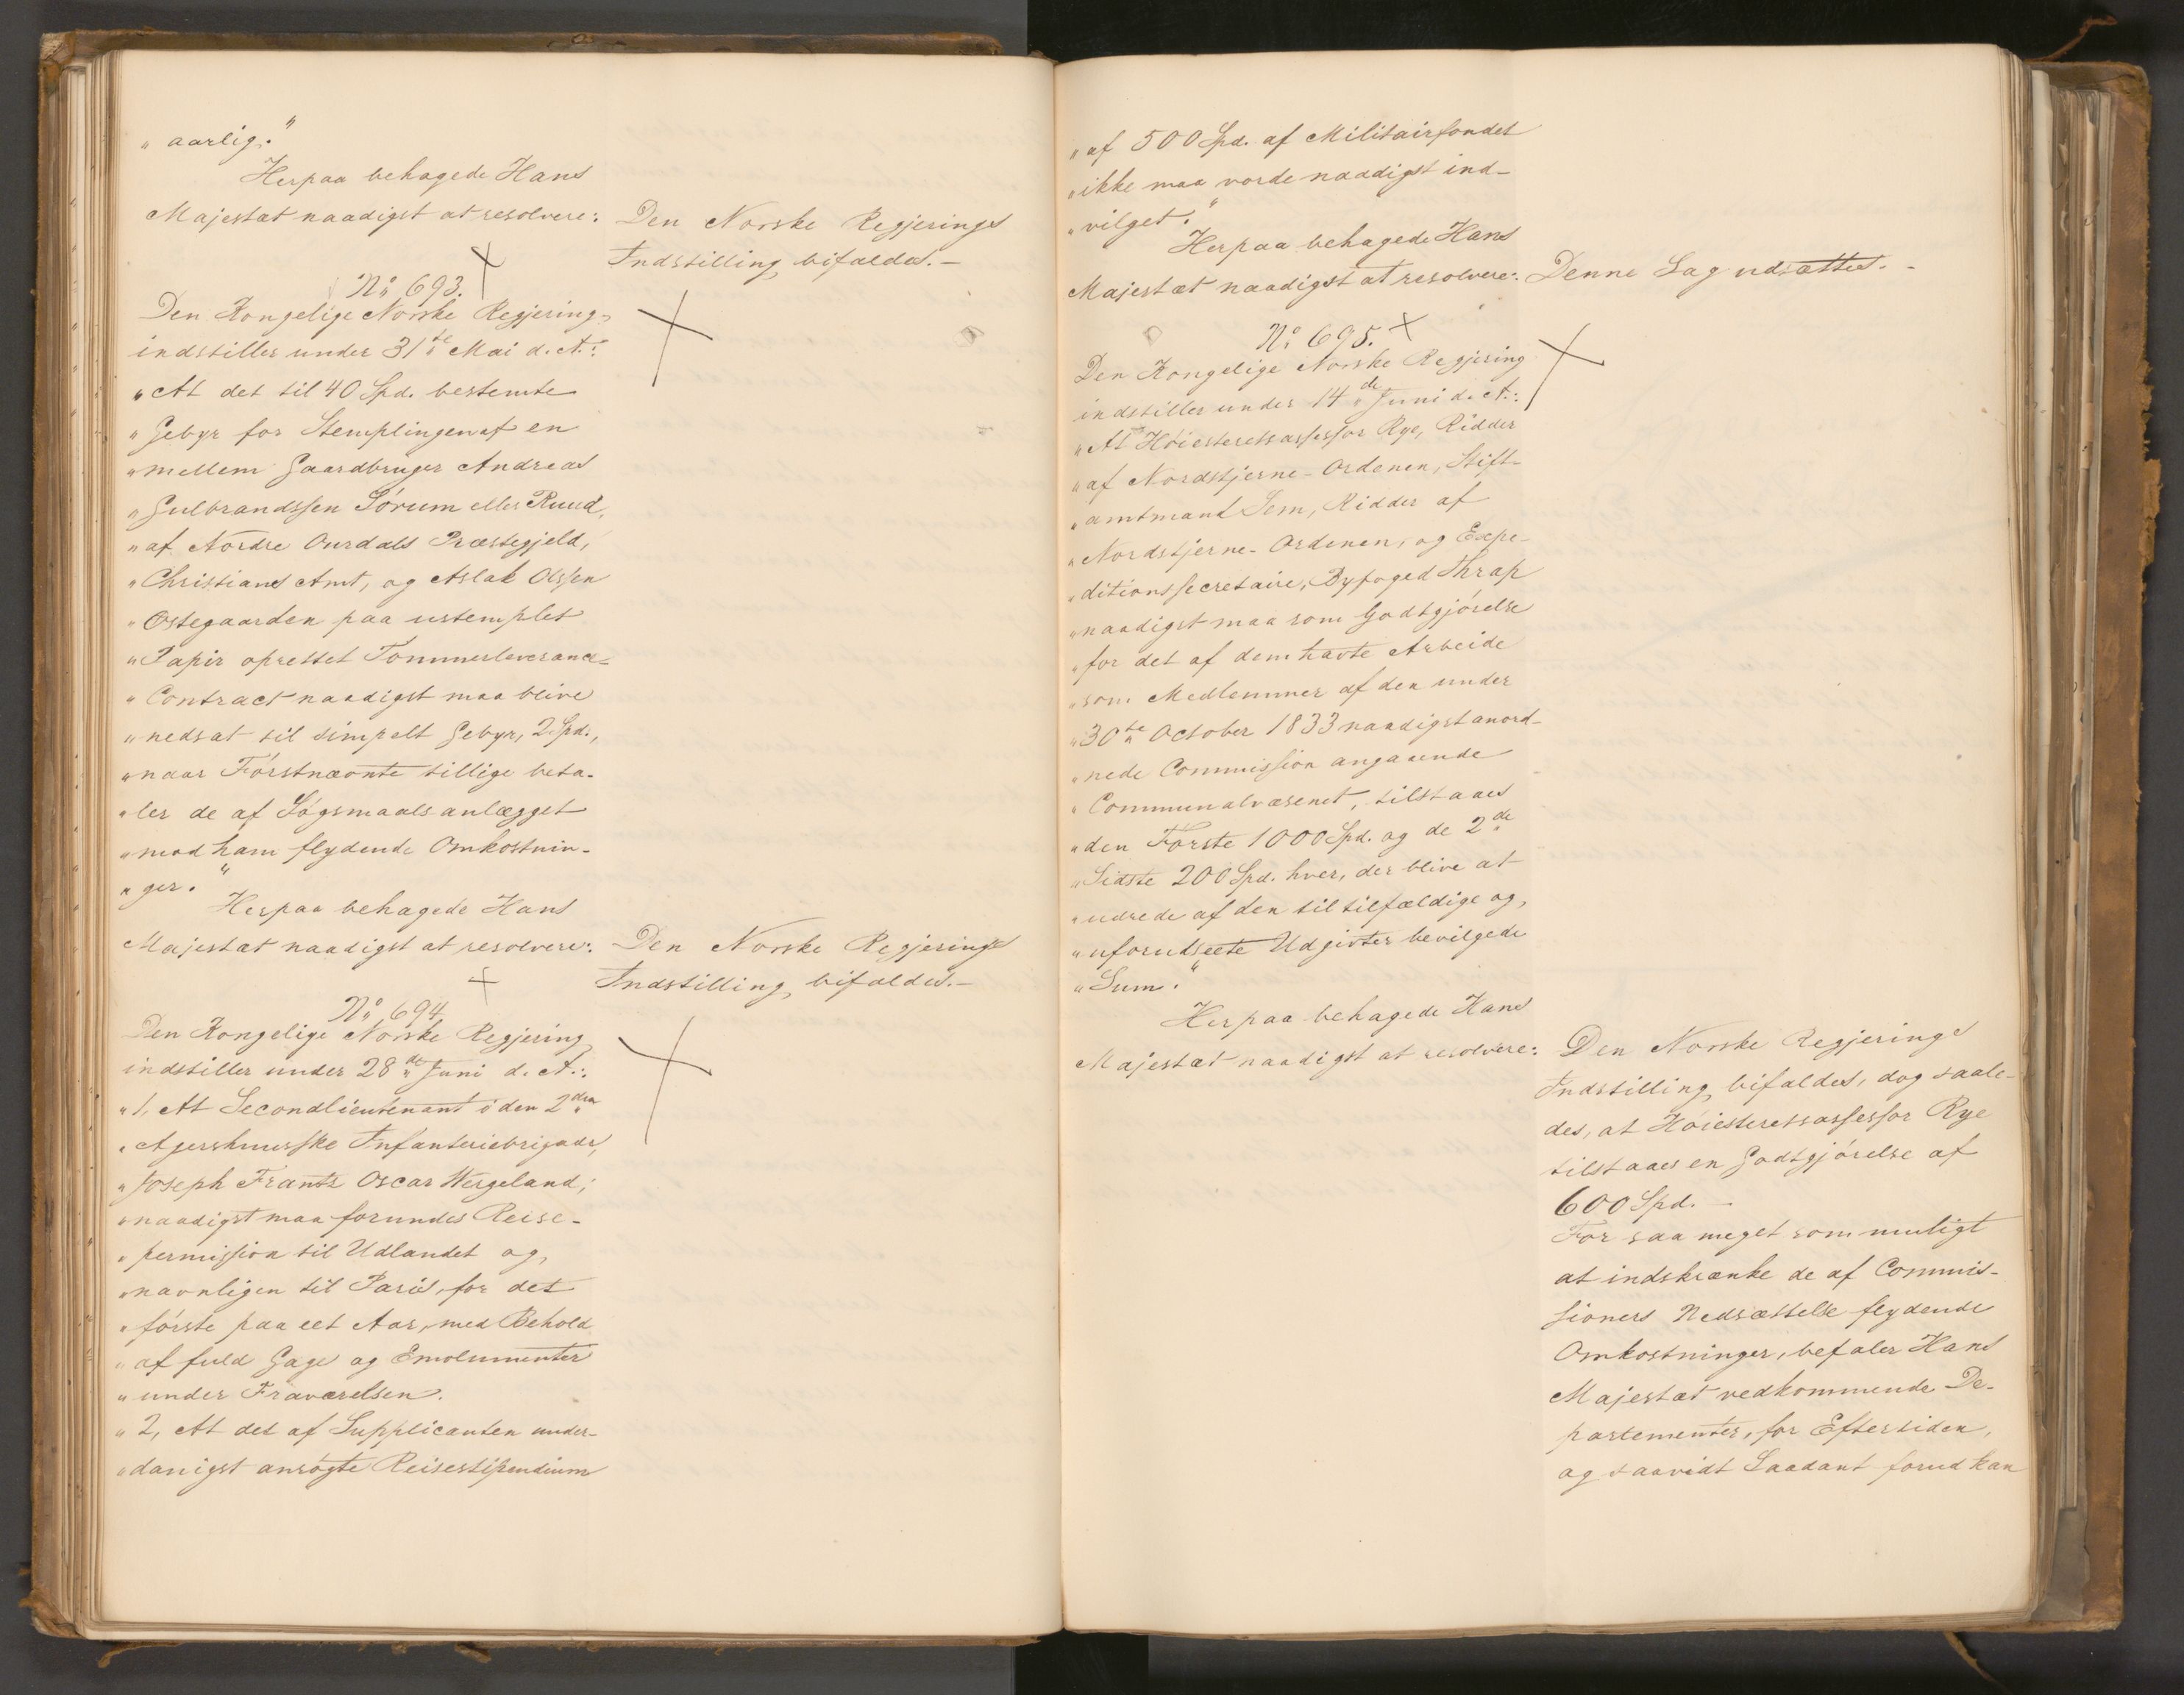 „aarlig."
Herpaa behagede Hans
Majestæt naadigst at resolvere:
Den Norske Regjerings
Indstilling bifaldes.—
No 693.
Den Kongelige Norske Regjering
indstiller under 31te Mai d. A.:
„At det til 40 Spd. bestemte
„Gebyr for Stemplingen af en
„mellem Gaardbruger Andreas
„Gulbrandssen Sørum eller Ruud,
„af Nordre Ourdals Præstegjeld,
„Christians Amt, og Aslak Olssen
„Østegaarden paa ustemplet
„Papir oprettet Tømmerleverance-
„Contract naadigst maa blive
„nedsat til simpelt Gebyr, 2 Spd.,
„naar Førstnævnte tillige beta-
„ler de af Søgsmaals anlægget
„mod ham flydende Omkostnin-
„ger."
Herpaa behagede Hans
Majestæt naadigst at resolvere:
Den Norske Regjerings
Indstilling bifaldes.—
No 694
Den Kongelige Norske Regjering
indstiller under 28de Juni d. A.:
„1, At Secondlieutenant i den 2den
„Agershuusske Infanteriebrigade,
„Joseph Frantz Oscar Wergeland,
„naadigst maa forundes Reise-
„permission til Udlandet og,
„navnligen til Paris, for det
„første paa eet Aar, med Behold
„af fuld Gage og Emolumenter
„under Fraværelsen.
„2, At det af Supplicanten under-
„danigst ansøgte Reisestipendium
„af 500 Spd. af Militairfondet
„ikke maa vorde naadigst ind-
„vilget."
Herpaa behagede Hans
Majestæt naadigst at resolvere:
Denne Sag udsættes.-
No 695.
Den Kongelige Norske Regjering
indstiller under 14de Juni d. A.:
„At Høiesteretsassessor Rye, Ridder
„af Nordstjerne-Ordenen, Stift-
„amtmand Sem, Ridder af
„Nordstjerne-Ordenen, og Expe-
„ditionssecretaire, Byfoged Thrap
„naadigst maa som Godtgjørelse
„for det af dem havte Arbeide
„som Medlemmer af den under
„30te October 1833 naadigst anord-
„nede Commission angaaende
„Communalvæsenet, tilstaaes
„den Første 1000 Spd. og de 2de
„Sidste 200 Spd. hver, der blive at
„udrede af den til tilfældige og,
„uforudseete Udgivter bevilgede
„Sum."
Herpaa behagede Hans
Majestæt naadigst at resolvere:
Den Norske Regjerings
Indstilling bifaldes, dog saale-
des, at Høiesteretsassessor Rye
tilstaaes en Godtgjørelse af
600 Spd. —
For saa meget som muligt
at indskrænke de af Commis-
sioners Nedsættelse flydende
Omkostninger, befaler Hans
Majestæt vedkommende De-
partementer, for Eftertiden,
og saavidt Saadant forud kan